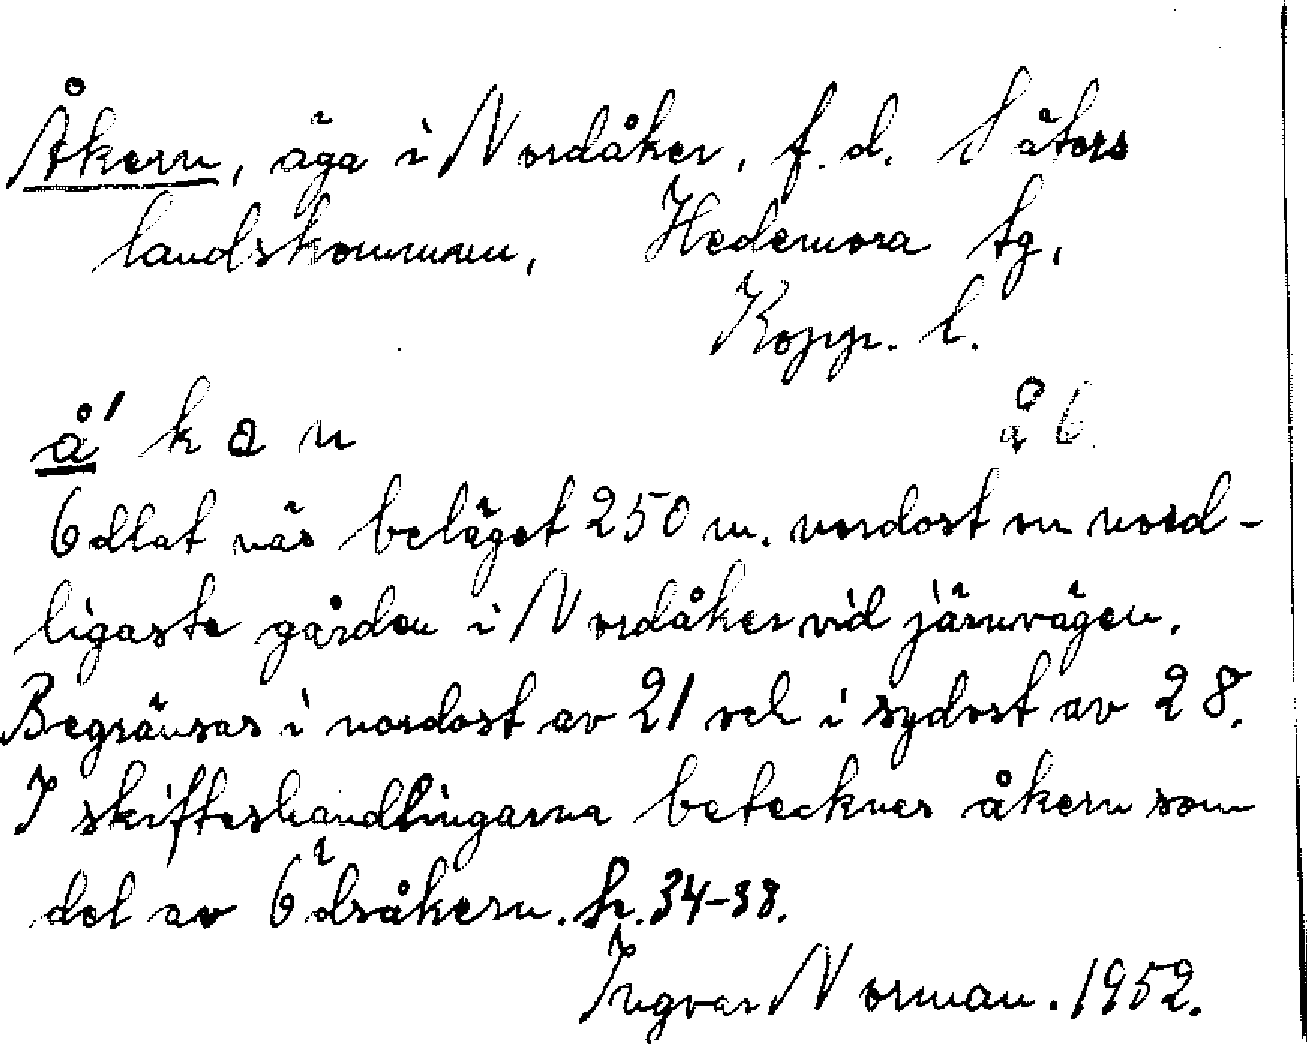 Åkern, äga i Nordåker, f.d. Säters
landskommun, Hedemora tg,
Kopp. l.
å' k a n å 6.
Odlat när beläget 250 m. nordost om nord-
ligaste gården i Nordåker vid järnvägen.
Begränsas i nordost av 21 och i sydost av 28.
I skifteshandlingarna betecknas åkern som
del av Ödsåkern. h. 34-38.
Ingvar Norman. 1952.